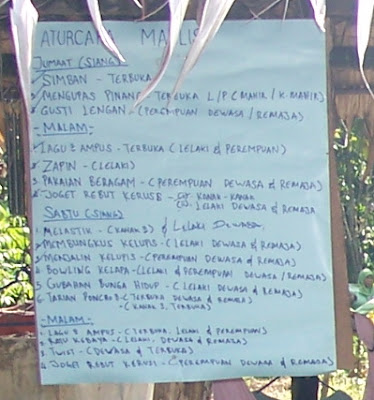 ATURCARA MAJLIS
JUMAAT (SIANG)
1. SIMBAN - TERBUKA
2. MENGUPAS PINANG - TERBUKA L/P (MAHIR / K. MAHIR)
3. GUSTI LENGAN - (PEREMPUAN DEWASA / REMAJA)
- MALAM -
1. LAGU 2 AMPUS - TERBUKA (LELAKI & PEREMPUAN)
2. ZAPIN - (LELAKI)
3. PAKAIAN BERAGAM - (PEREMPUAN DEWASA & REMAJA)
4. JOGET REBUT KERUSI - (i) KANAK - KANAK
(ii) LELAKI DEWASA & REMAJA
SABTU (SIANG)
1. MELASTIK - (KANAK2) & LELAKI DEWASA
2. MEMBUNGKUS KELUPIS - (LELAKI DEWASA & REMAJA)
3. MENJALIN KELUPIS - (PEREMPUAN DEWASA & REMAJA)
4. BOWLING KELAPA - (LELAKI & PEREMPUAN DEWASA / REMAJA)
5. GUBAHAN BUNGA HIDUP - (LELAKI DEWASA & REMAJA)
6. TARIAN PONCHO2 - (TERBUKA DEWASA & REMAJA)
- (KANAK2, TERBUKA)
- MALAM -
1. LAGU2 AMPUS - (TERBUKA. LELAKI & PEREMPUAN)
2. RATU KEBAYA - (LELAKI. DEWASA & REMAJA)
3. TWIST - (DEWASA & TERBUKA)
4. JOGET REBUT KERUSI - (PEREMPUAN DEWASA & REMAJA)